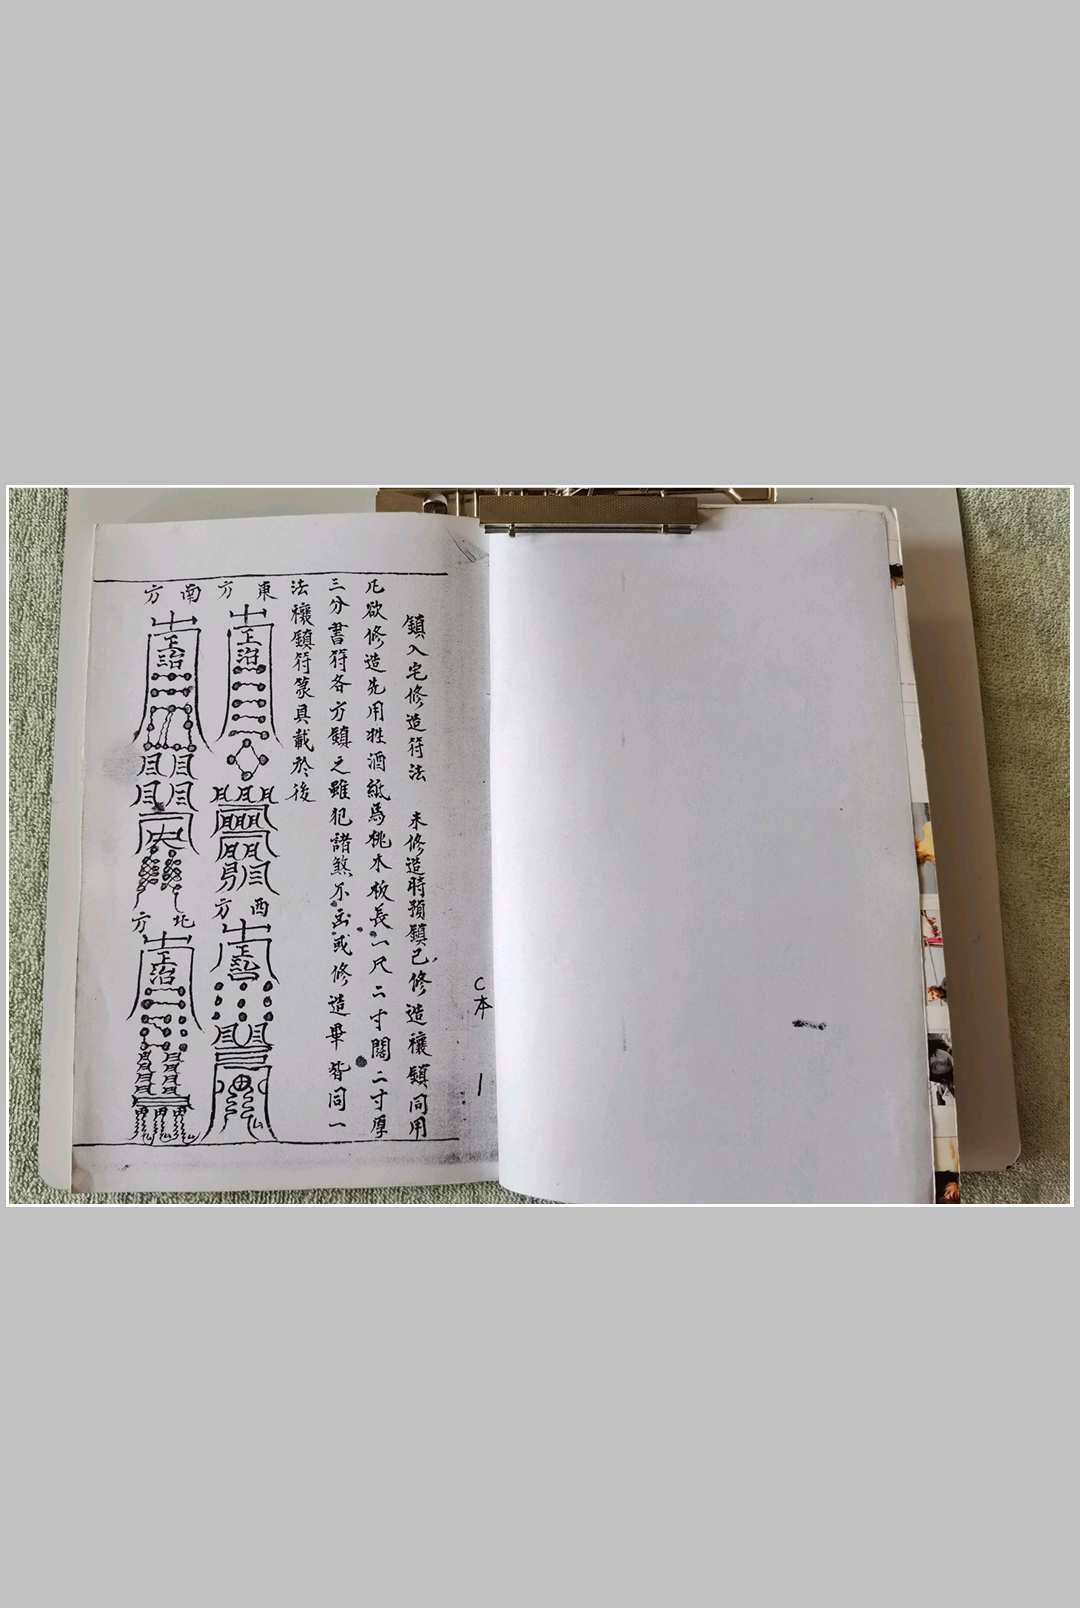 鎮入宅修造符法　未修造時預鎮已修造禳鎮同用
凡欲修造先用牲酒紙馬桃木板長一尺二寸闊二寸厚
三分書符各方鎮之雖犯諸煞不凶或修造畢皆同一
法禳鎮符篆具載於後
東方
南方
西方
北方
C本
1